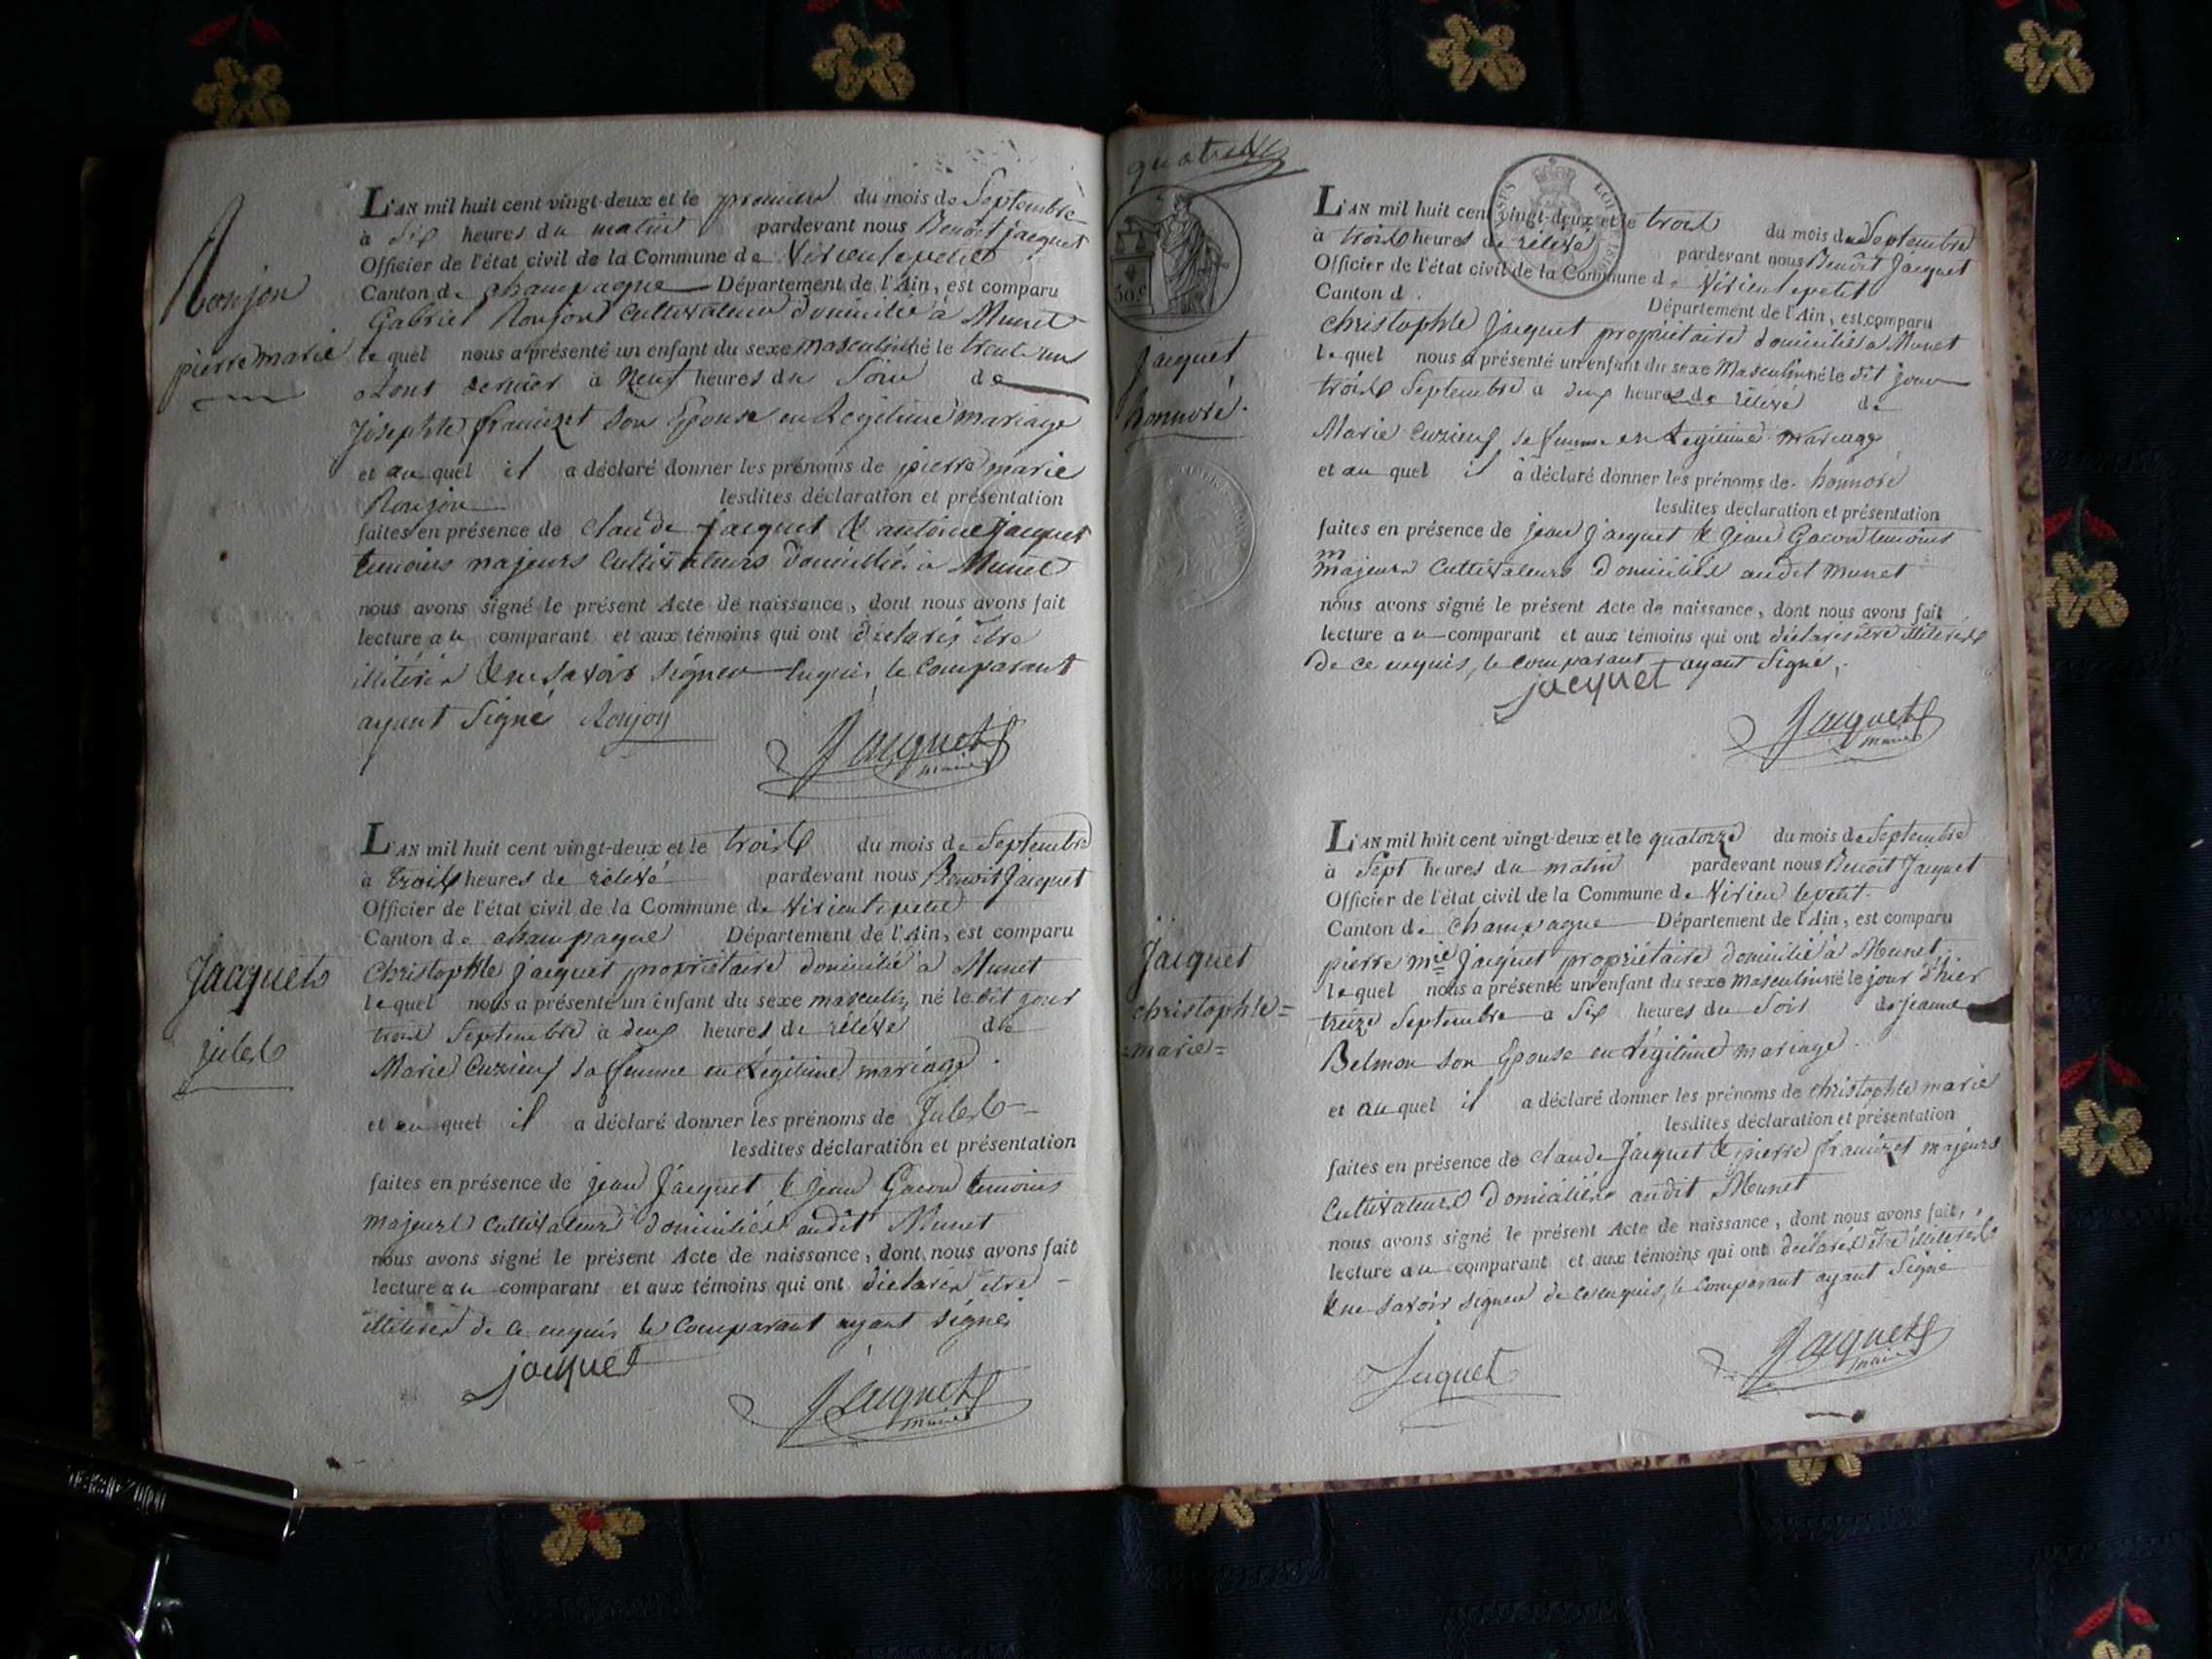 Ronjon
pierre marie
L'AN mil huit cent vingt-deux et le premier du mois de Septembre
à Six heures du matin pardevant nous Benoit jacquet
Officier de l'état civil de la Commune de Virieu le petit
Canton de champagne Département de l'Ain, est comparu
Gabriel Ronjon Cultivateur domicilié à Munet
lequel nous a présenté un enfant du sexe masculin né le trente un
aout dernier à Neuf heures du Soir de
Josephte francizet son Epouse en Légitime mariage
et au quel il a déclaré donner les prénoms de pierre marie
Ronjon lesdites déclaration et présentation
faites en présence de claude jacquet & antoine jacquet
temoins majeurs Cultivateurs domiciliés à Munet
nous avons signé le présent Acte de naissance, dont nous avons fait
lecture au comparant et aux témoins qui ont déclarés être
illiterés & ne savoir signer Enquis, le Comparant
ayant Signé Ronjon
Jacquet
maire
Jacquet
jules
L'AN mil huit cent vingt-deux et le trois du mois de Septembre
à trois heures de rélévé pardevant nous Benoit Jacquet
Officier de l'état civil de la Commune de Virieu le petit
Canton de champagne Département de l'Ain, est comparu
Christophle Jacquet propriétaire domicilié à Munet
lequel nous a présenté un enfant du sexe masculin né le dit jour
trois Septembre à deux heures de rélévé de
Marie Cuzieux sa femme en Légitime mariage
et au quel il a déclaré donner les prénoms de Jules
lesdites déclaration et présentation
faites en présence de jean Jacquet & jean Gacon temoins
majeurs Cultivateurs domiciliés audit Munet
nous avons signé le présent Acte de naissance, dont nous avons fait
lecture au comparant et aux témoins qui ont déclarés être
illiterés de ce enquis le Comparant ayant signé
jacquet
Jacquet
maire
50 c
Jacquet
honnoré
L'AN mil huit cent vingt-deux et le trois du mois de Septembre
à trois heures de rélévé pardevant nous Benoit Jacquet
Officier de l'état civil de la Commune de Virieu le petit
Canton d Département de l'Ain, est comparu
Christophle Jacquet propriétaire domicilié à Munet
lequel nous a présenté un enfant du sexe Masculin né le dit jour
trois Septembre à deux heures de rélévé de
Marie Cuzieux sa femme en Légitime mariage
et au quel il a déclaré donner les prénoms de honnoré
lesdites déclaration et présentation
faites en présence de jean Jacquet & jean Gacon temoins
majeurs Cultivateurs domiciliés audit Munet
nous avons signé le présent Acte de naissance, dont nous avons fait
lecture au comparant et aux témoins qui ont déclarés être illiterés
de ce enquis, le comparant ayant Signé.
jacquet
Jacquet
maire
Jacquet
christophle=
=marie=
L'AN mil huit cent vingt-deux et le quatorze du mois de Septembre
à Sept heures du matin pardevant nous Benoit Jacquet
Officier de l'état civil de la Commune de Virieu le petit
Canton de Champagne Département de l'Ain, est comparu
pierre mie Jacquet propriétaire domicilié à Munet
lequel nous a présenté un enfant du sexe Masculin né le jour d'hier
treize Septembre à Six heures du Soir de jeanne
Belmon son Epouse en Légitime mariage
et au quel il a déclaré donner les prénoms de christophle marie
lesdites déclaration et présentation
faites en présence de claude Jacquet & pierre francizet majeurs
Cultivateurs domiciliés audit Munet
nous avons signé le présent Acte de naissance, dont nous avons fait
lecture au comparant et aux témoins qui ont déclarés être illiterés
& ne savoir signer de ce enquis, le Comparant ayant Signé
Jaquet
Jacquet
maire